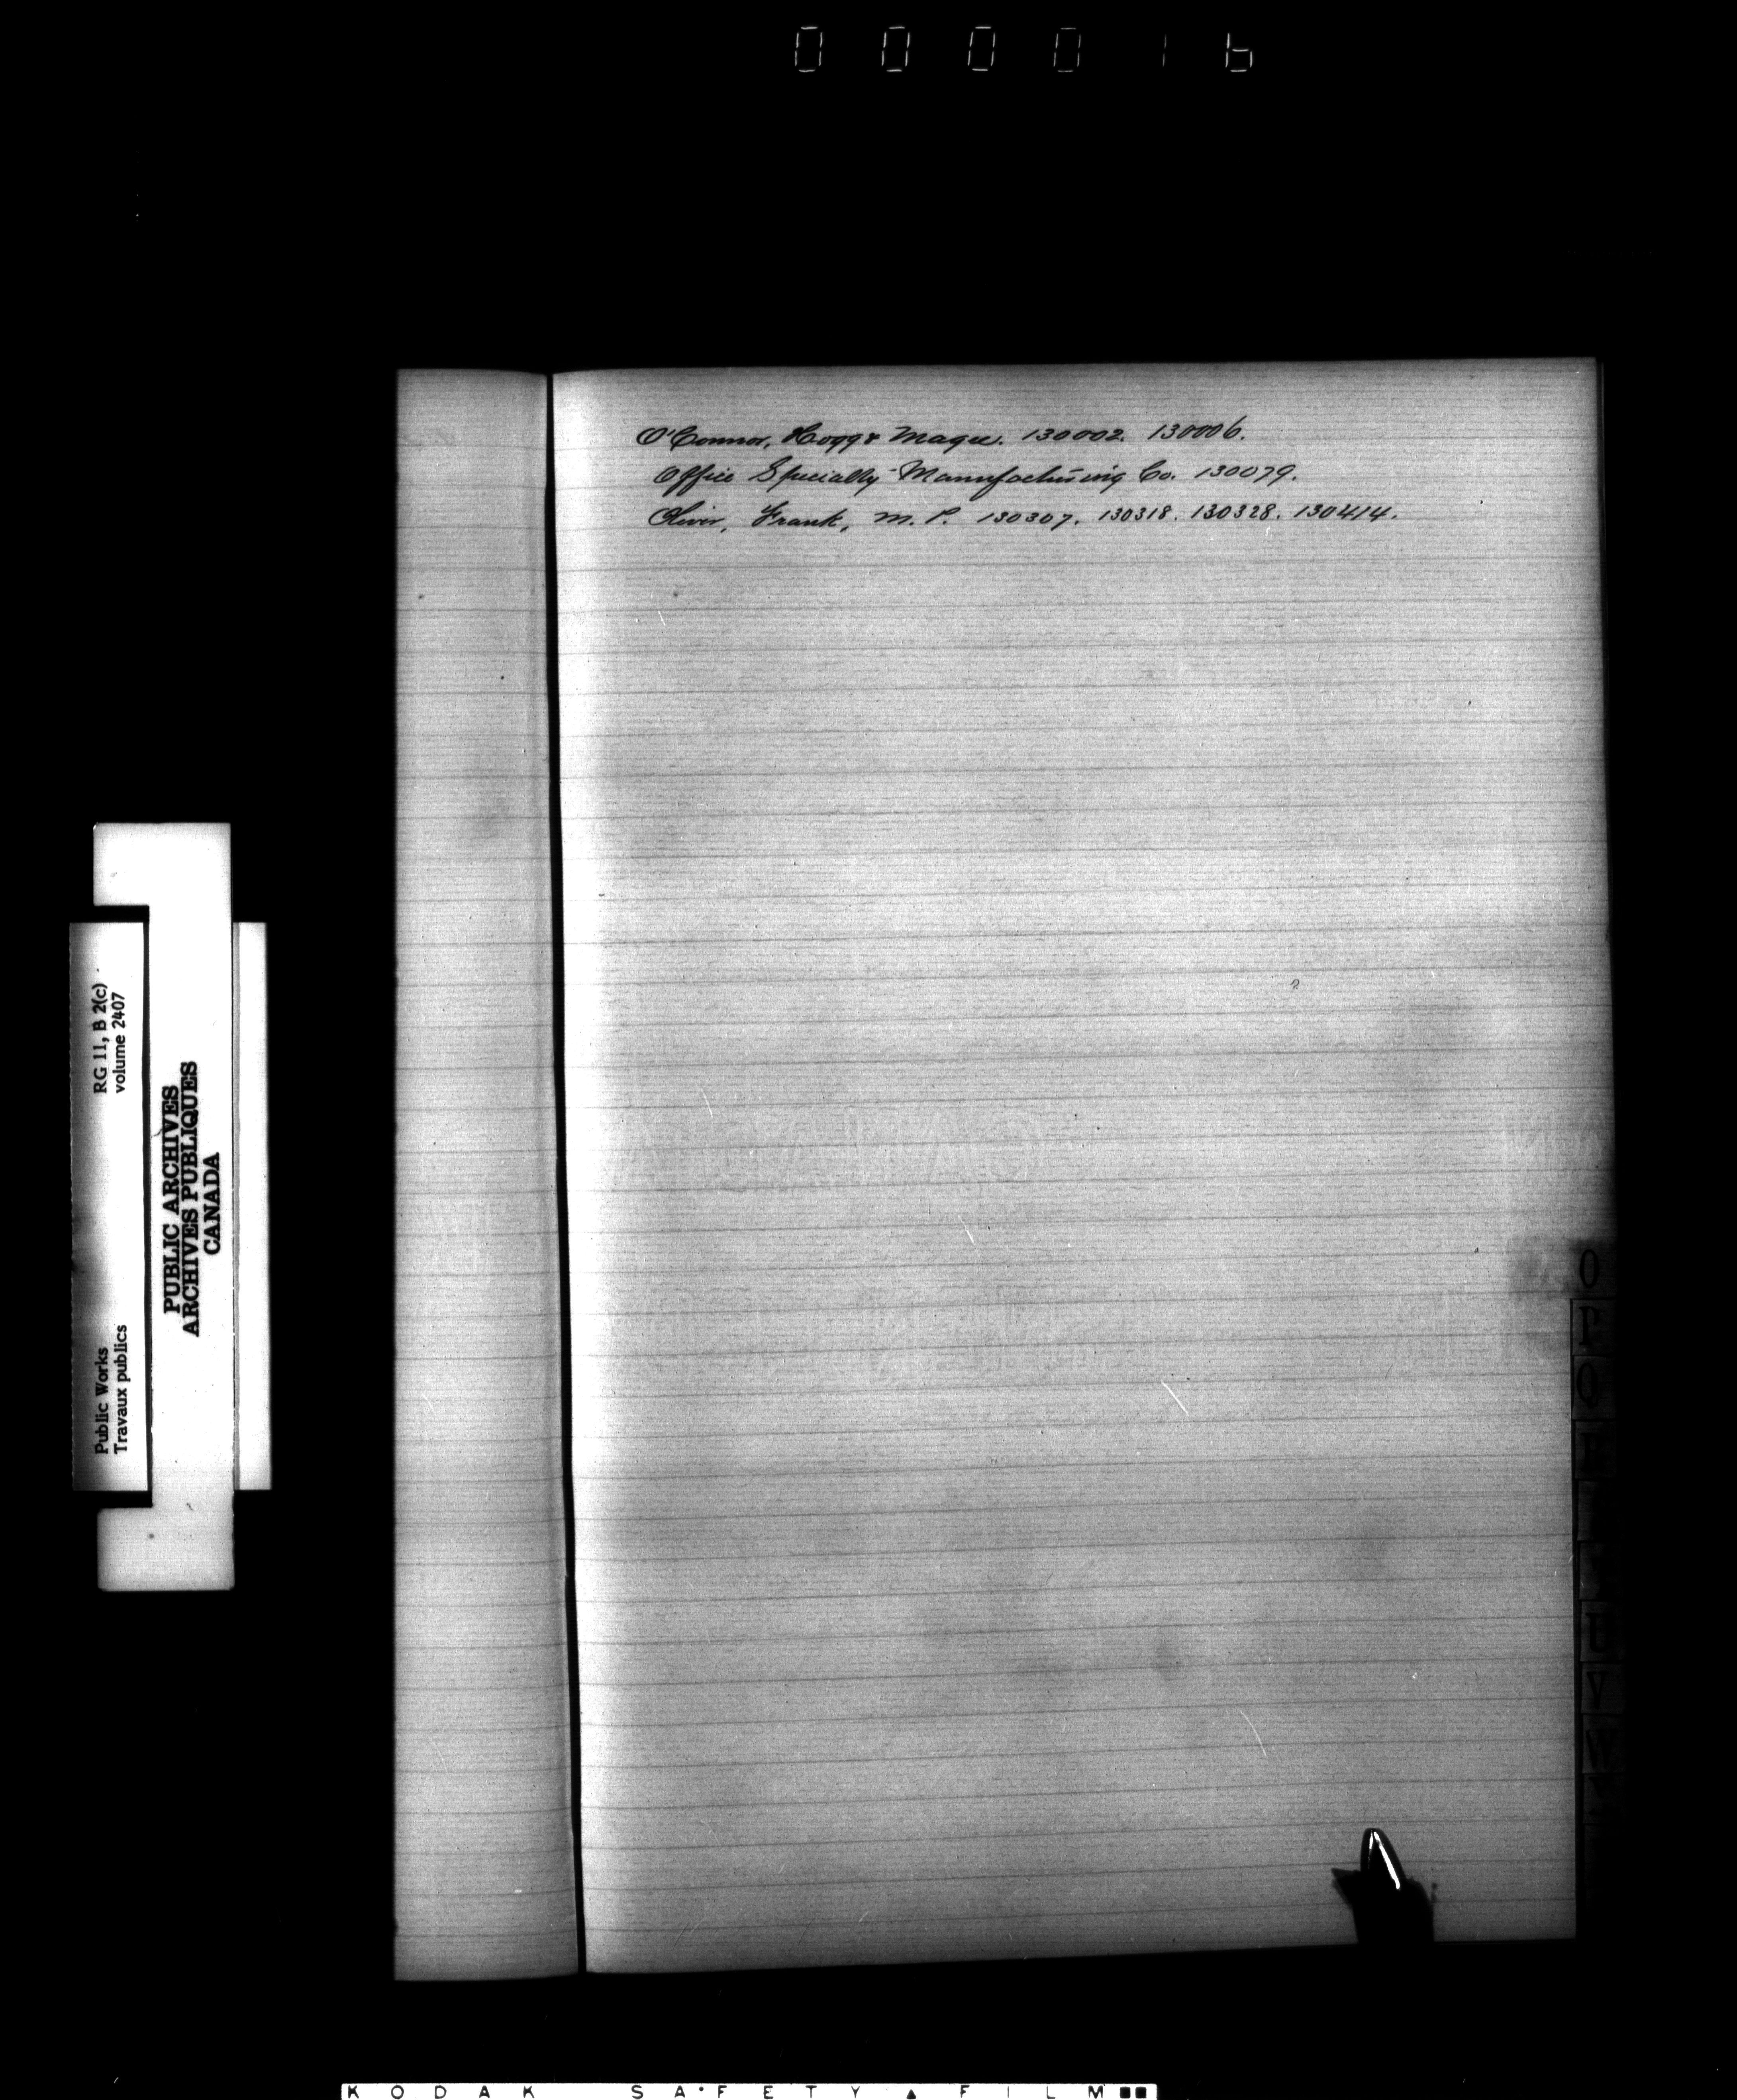 000016
O'Connor, Hogg & Magee. 130002. 130006.
Office Specialty Manufacturing Co. 130079.
Oliver, Frank, M. P. 130307. 130318. 130328. 130414.
RG 11, B 2(c)
volume 2407
Public Works
Travaux publics
PUBLIC ARCHIVES
ARCHIVES PUBLIQUES
CANADA
O
P
Q
R
KODAK SAFETY FILM